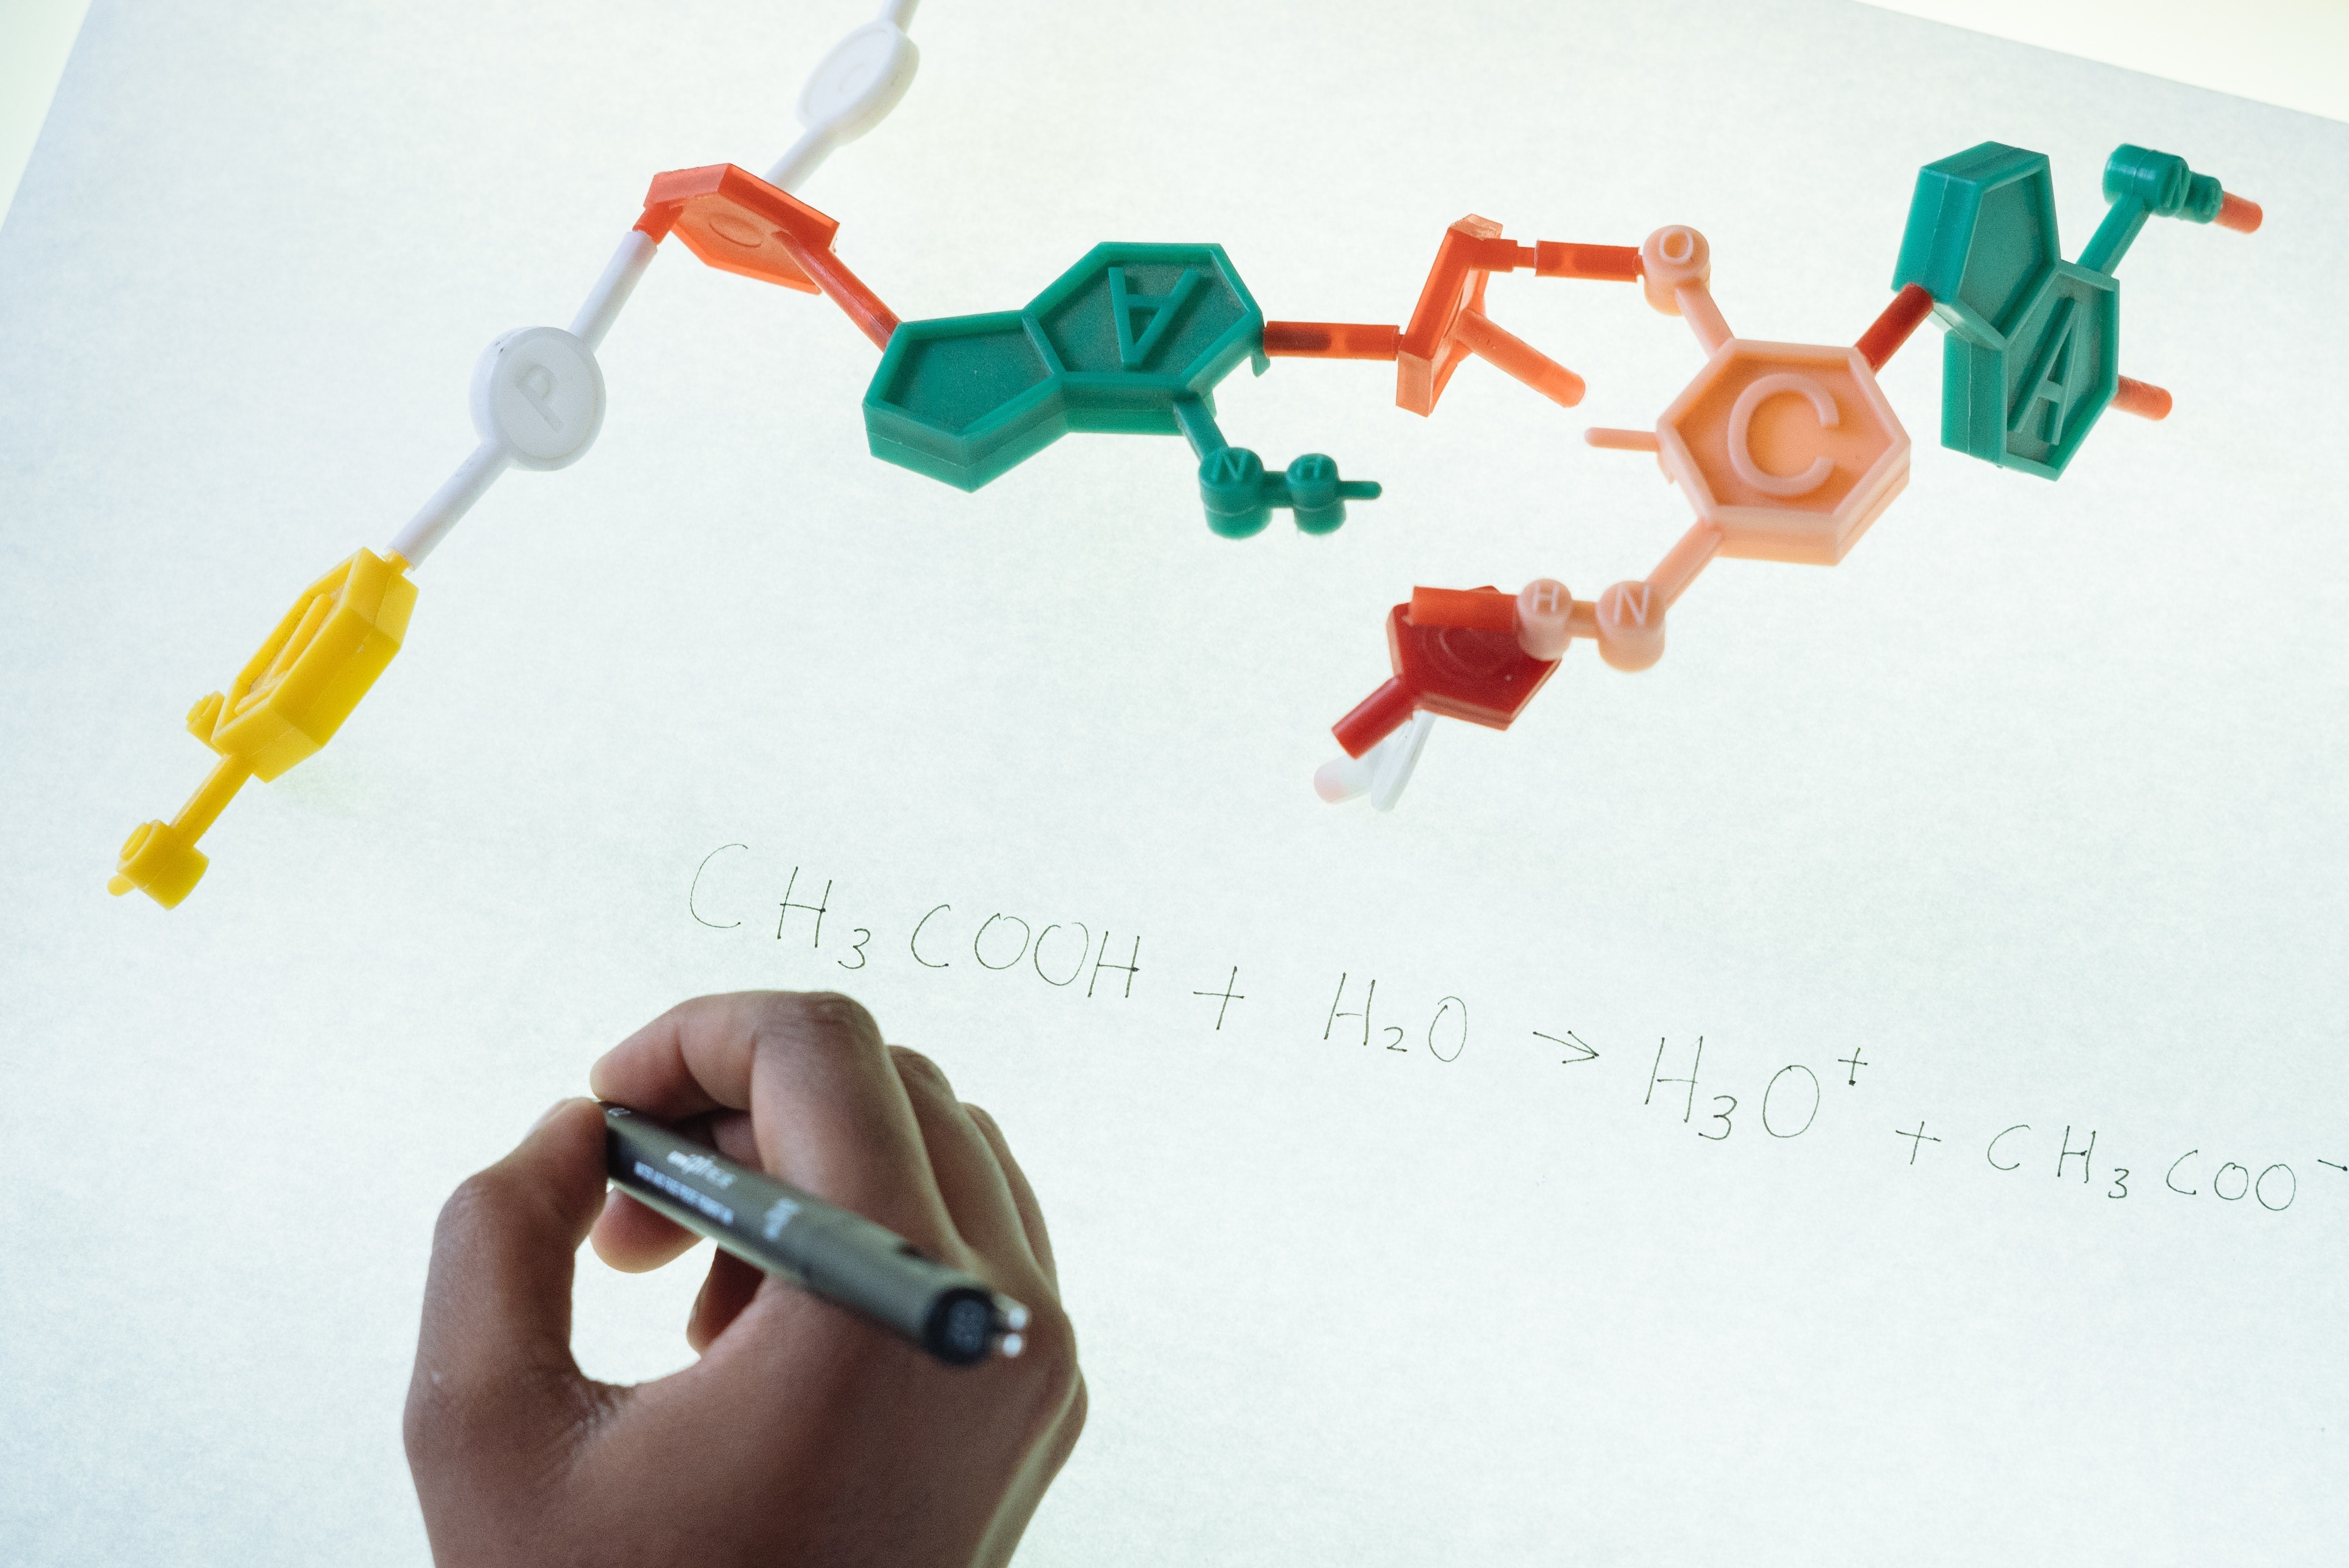 P
A
O
C
A
N H
H N
CH₃COOH + H₂O → H₃O⁺ + CH₃COO⁻